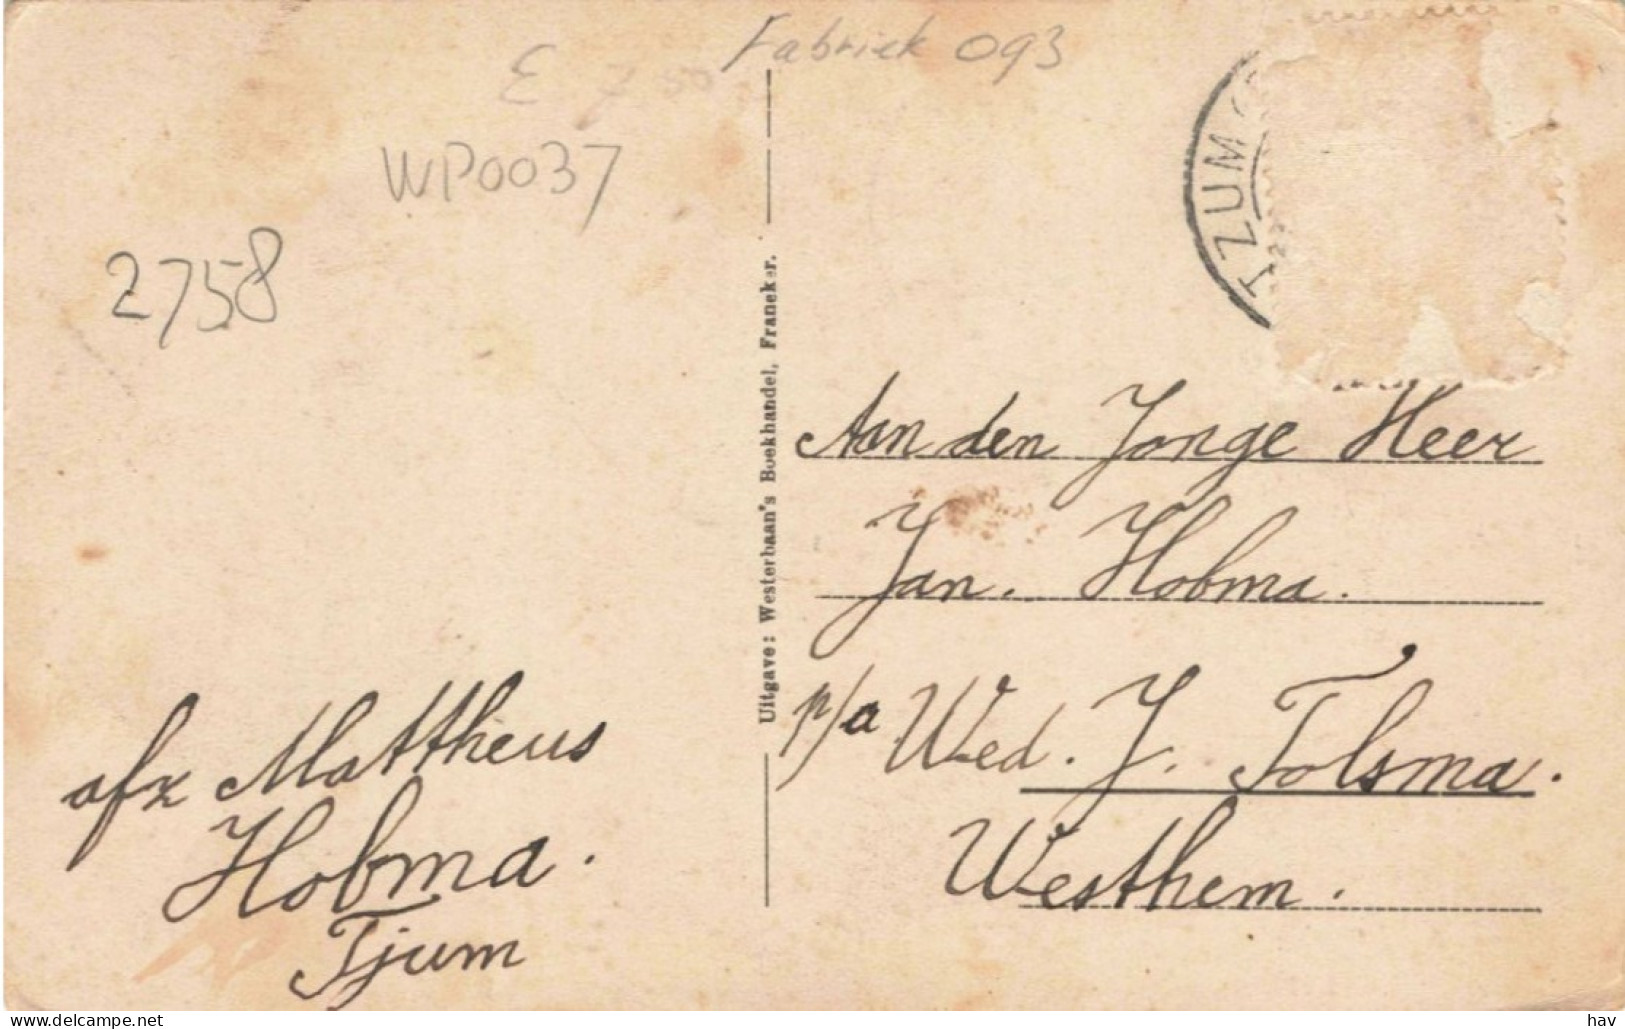 Fabriek 093
E 7 50
WP0037
2758
TZUM
Uitgave: Westerbaan's Boekhandel, Franeker.
Aan den Jonge Heer
Jan. Hobma.
p/a Wed. J. Tolsma.
Westhem.
afz Mattheus
Hobma.
Tjum
delcampe.net
hav